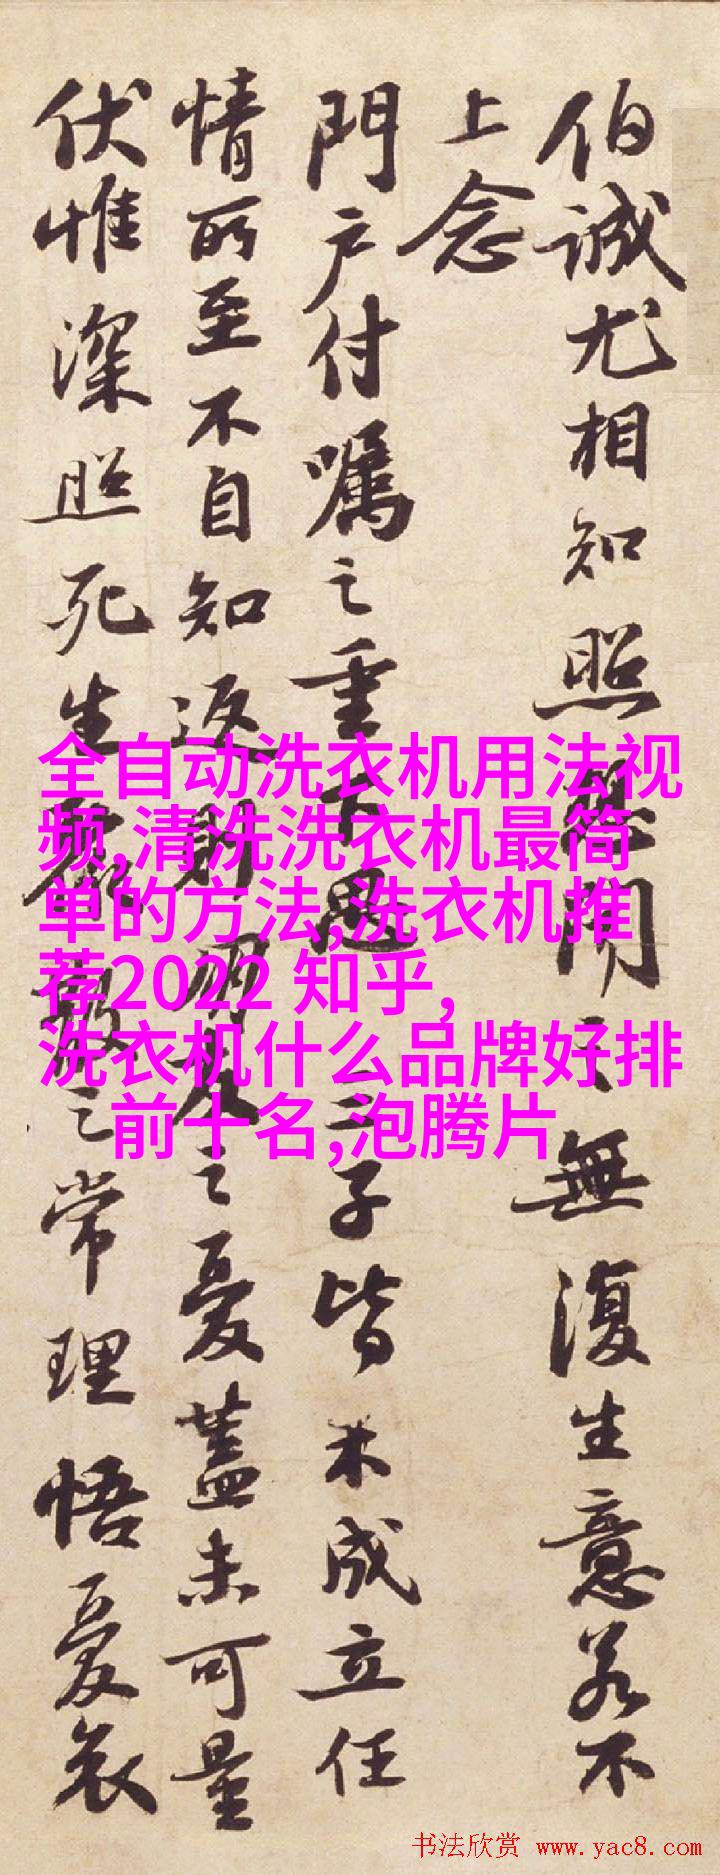 伯誠尤相知照聞之無復生意若不
上念
門户付囑之重下愚三子皆未成立任
情所至不自知返則朋友之憂蓋未可量
伏惟深照死生聚散之常理悟憂哀
全自动洗衣机用法视
频,清洗洗衣机最简
单的方法,洗衣机推
荐2022 知乎,
洗衣机什么品牌好排
前十名,泡腾片
书法欣赏 www.yac8.com